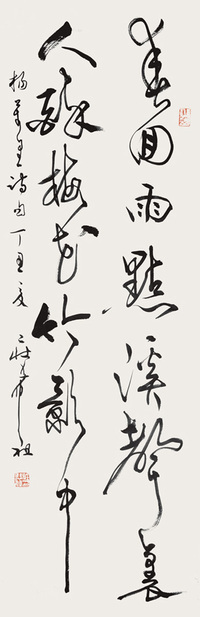 春回雨點溪聲裏
人醉梅花竹影中
楊萬里詩句丁丑夏